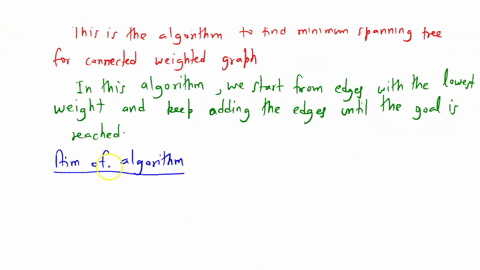 This is the algorithm to find minimum spanning tree
for connected weighted graph
In this algorithm, we start from edges with the lowest
weight and keep adding the edges until the goal is
reached.
Aim of algorithm